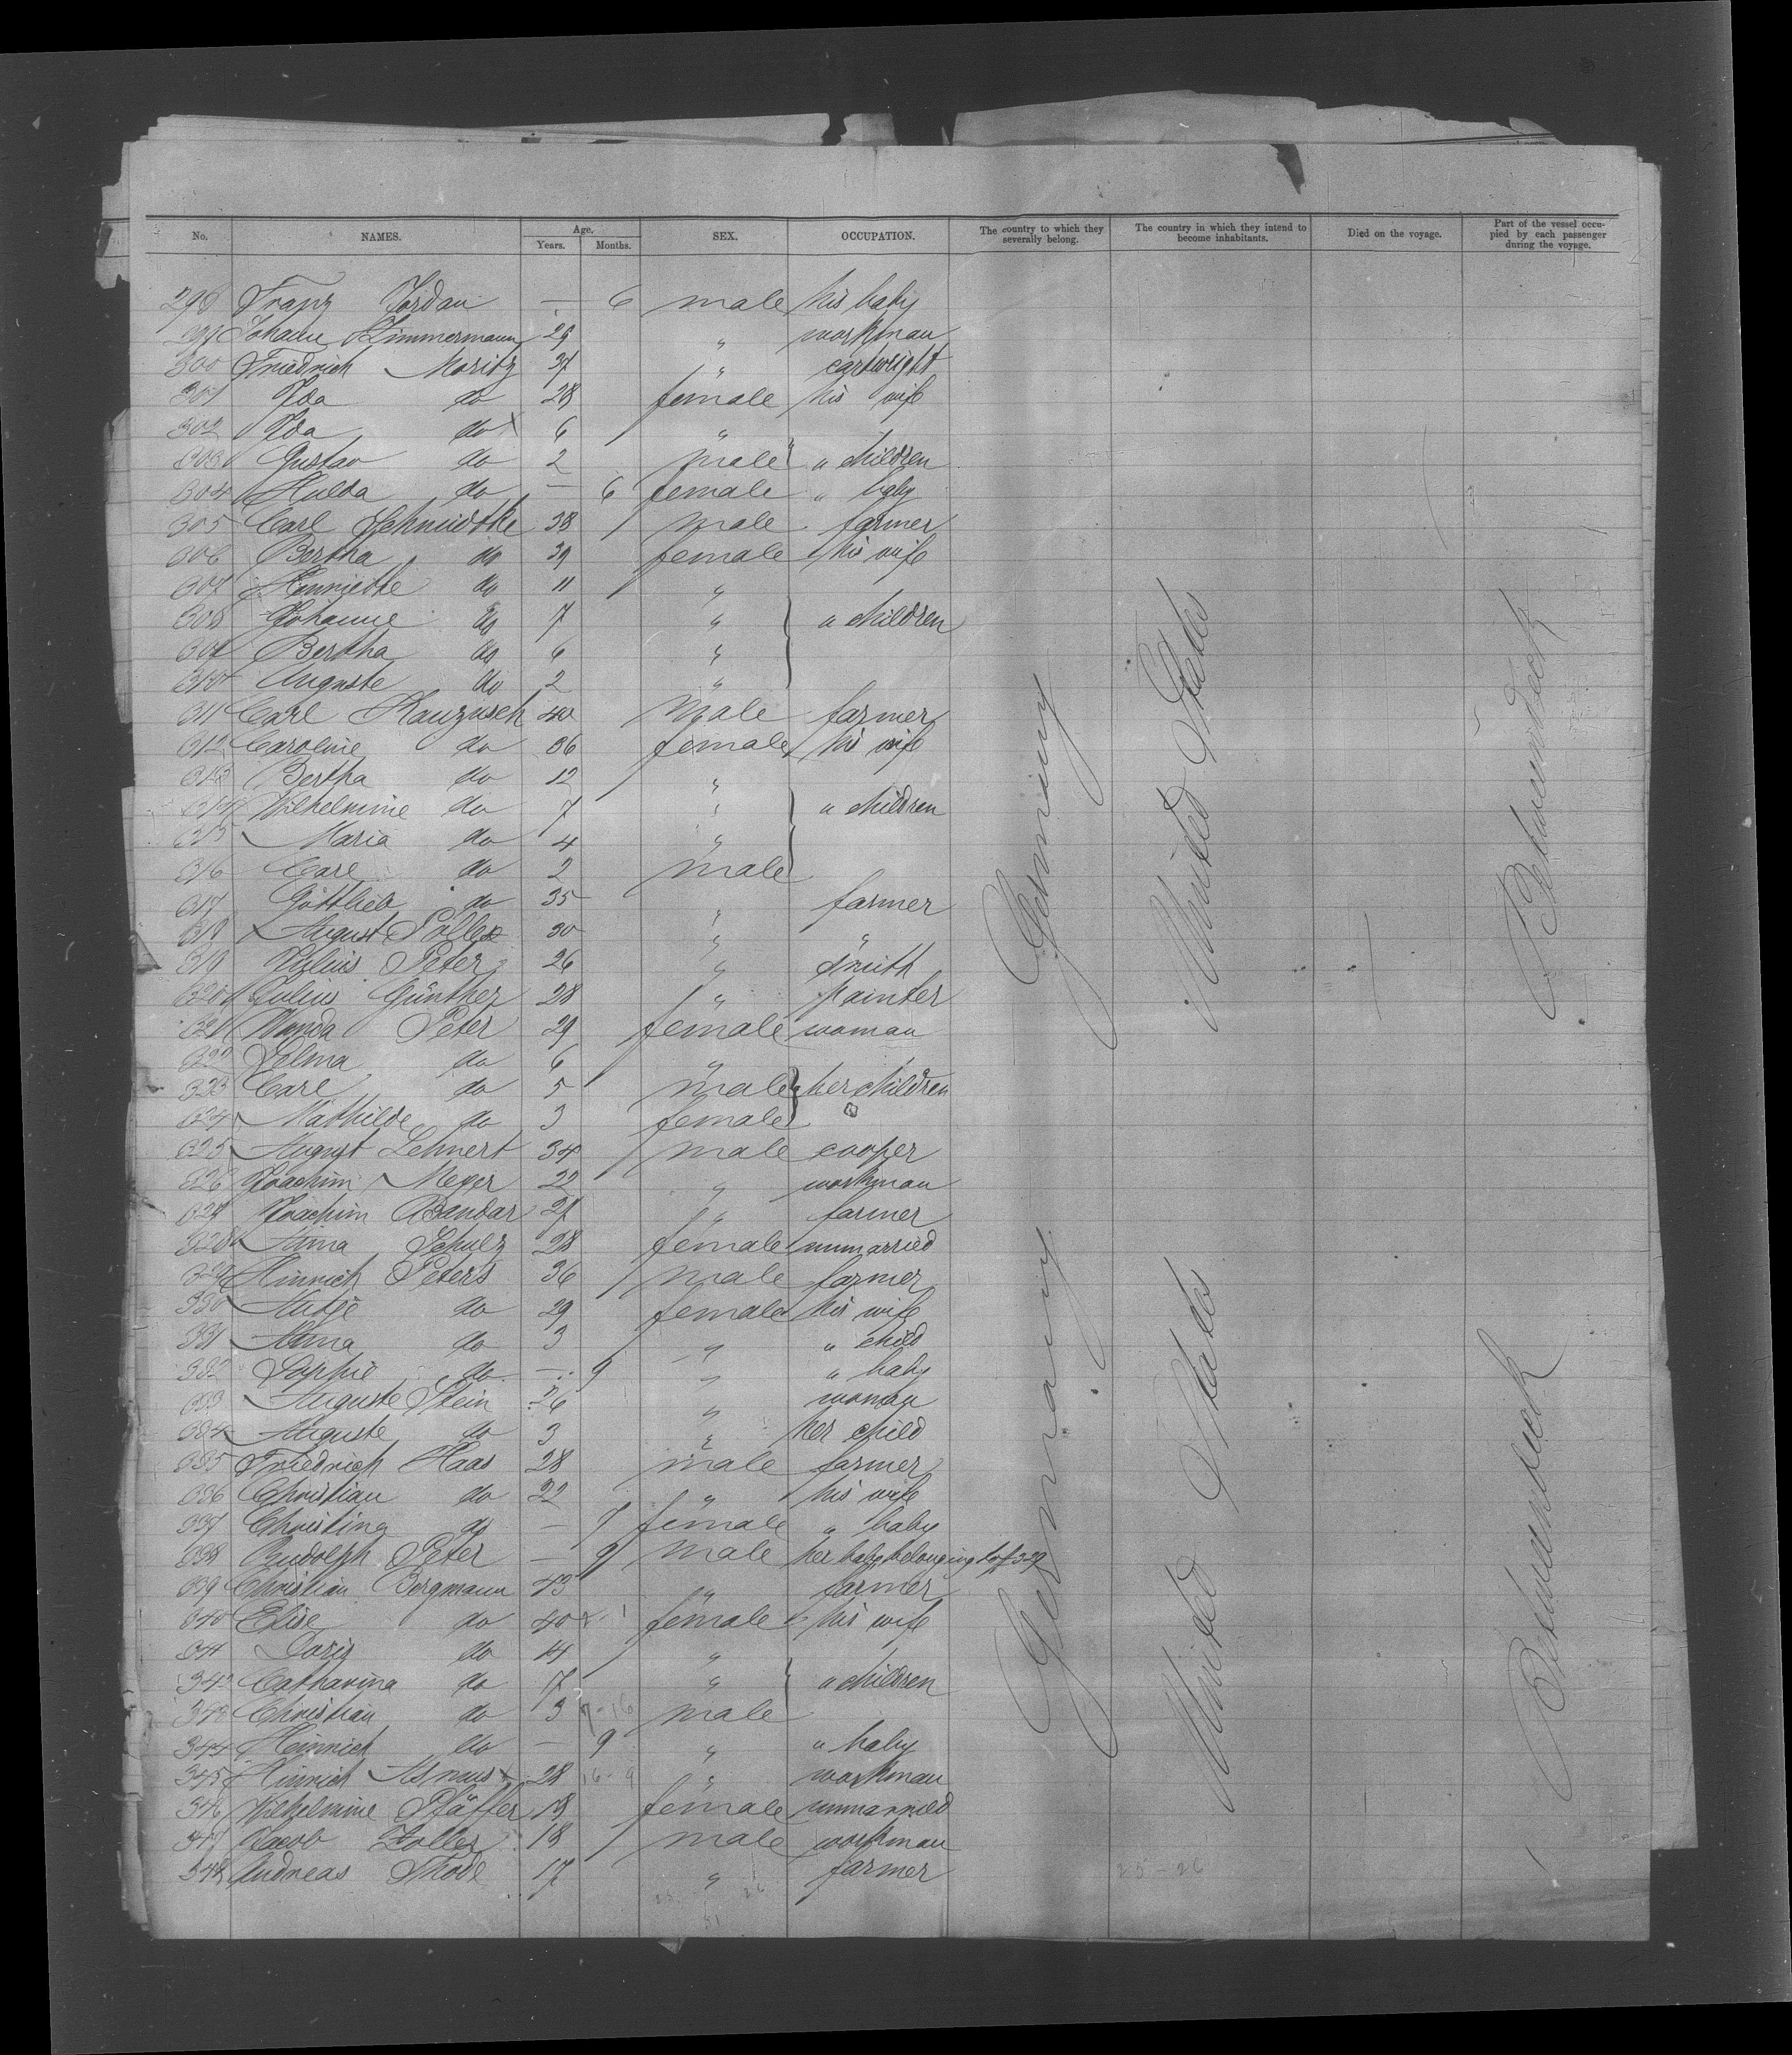 No. NAMES. Age. Years. Months. SEX. OCCUPATION. The country to which they severally belong. The country in which they intend to become inhabitants. Died on the voyage. Part of the vessel occupied by each passenger during the voyage.
298 Franz Jordan — 6 male his baby
299 Johann Zimmermann 29 " workman
300 Friedrich Moritz 37 " cartwright
301 Ida do 28 female his wife
302 Ida do 6 "
303 Gustav do 2 male " children
304 Hulda do — 6 female " baby
305 Carl Schmidtke 38 male farmer
306 Bertha do 39 female his wife
307 Henriette do 11 "
308 Johanne do 7 " " children
309 Bertha do 6 "
310 Auguste do 2 "
311 Carl Kanzusch 40 male farmer
312 Caroline do 36 female his wife
313 Bertha do 12 "
314 Wilhelmine do 7 " " children
315 Maria do 4 "
316 Carl do 2 male
317 Gottlieb do 35 " farmer
318 August 30 " "
319 Julius Peter 26 " smith
320 Julius Günther 28 " painter
321 Wanda Peter 29 female woman
322 Selma do 6 "
323 Carl do 5 male her children
324 Mathilde do 3 female
325 August Lehnert 34 male cooper
326 Joachim Meyer 22 " workman
327 Joachim 27 " farmer
328 Anna Schulz 28 female unmarried
329 Hinrich Peters 36 male farmer
330 Antje do 29 female his wife
331 Anna do 3 " " child
332 Sophie do — 9 " " baby
333 Auguste Stein 26 " woman
334 Auguste do 3 " her child
335 Friedrich Haas 28 male farmer
336 Christian do 22 " his wife
337 Christina do — 9 female " baby
338 Rudolph Peter — 9 male her baby belonging to
339 Christian Bergmann 43 " farmer
340 Elise do 40 female his wife
341 Doris do 14 "
342 Catharina do 17 " " children
343 Christian do 3 male
344 Heinrich do — 9 " " baby
345 Hinrich Asmus 28 " workman
346 Wilhelmine Pfäffer 18 female unmarried
347 Jacob Zoller 18 male workman
348 Andreas Thode 17 " farmer
Germany
United States
Betweendeck
Germany
United States
Betweendeck
25-26